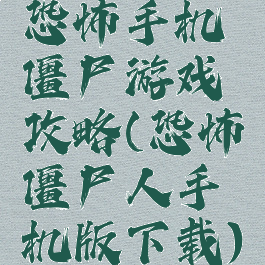 恐怖手机
僵尸游戏
攻略(恐怖
僵尸人手
机版下载)